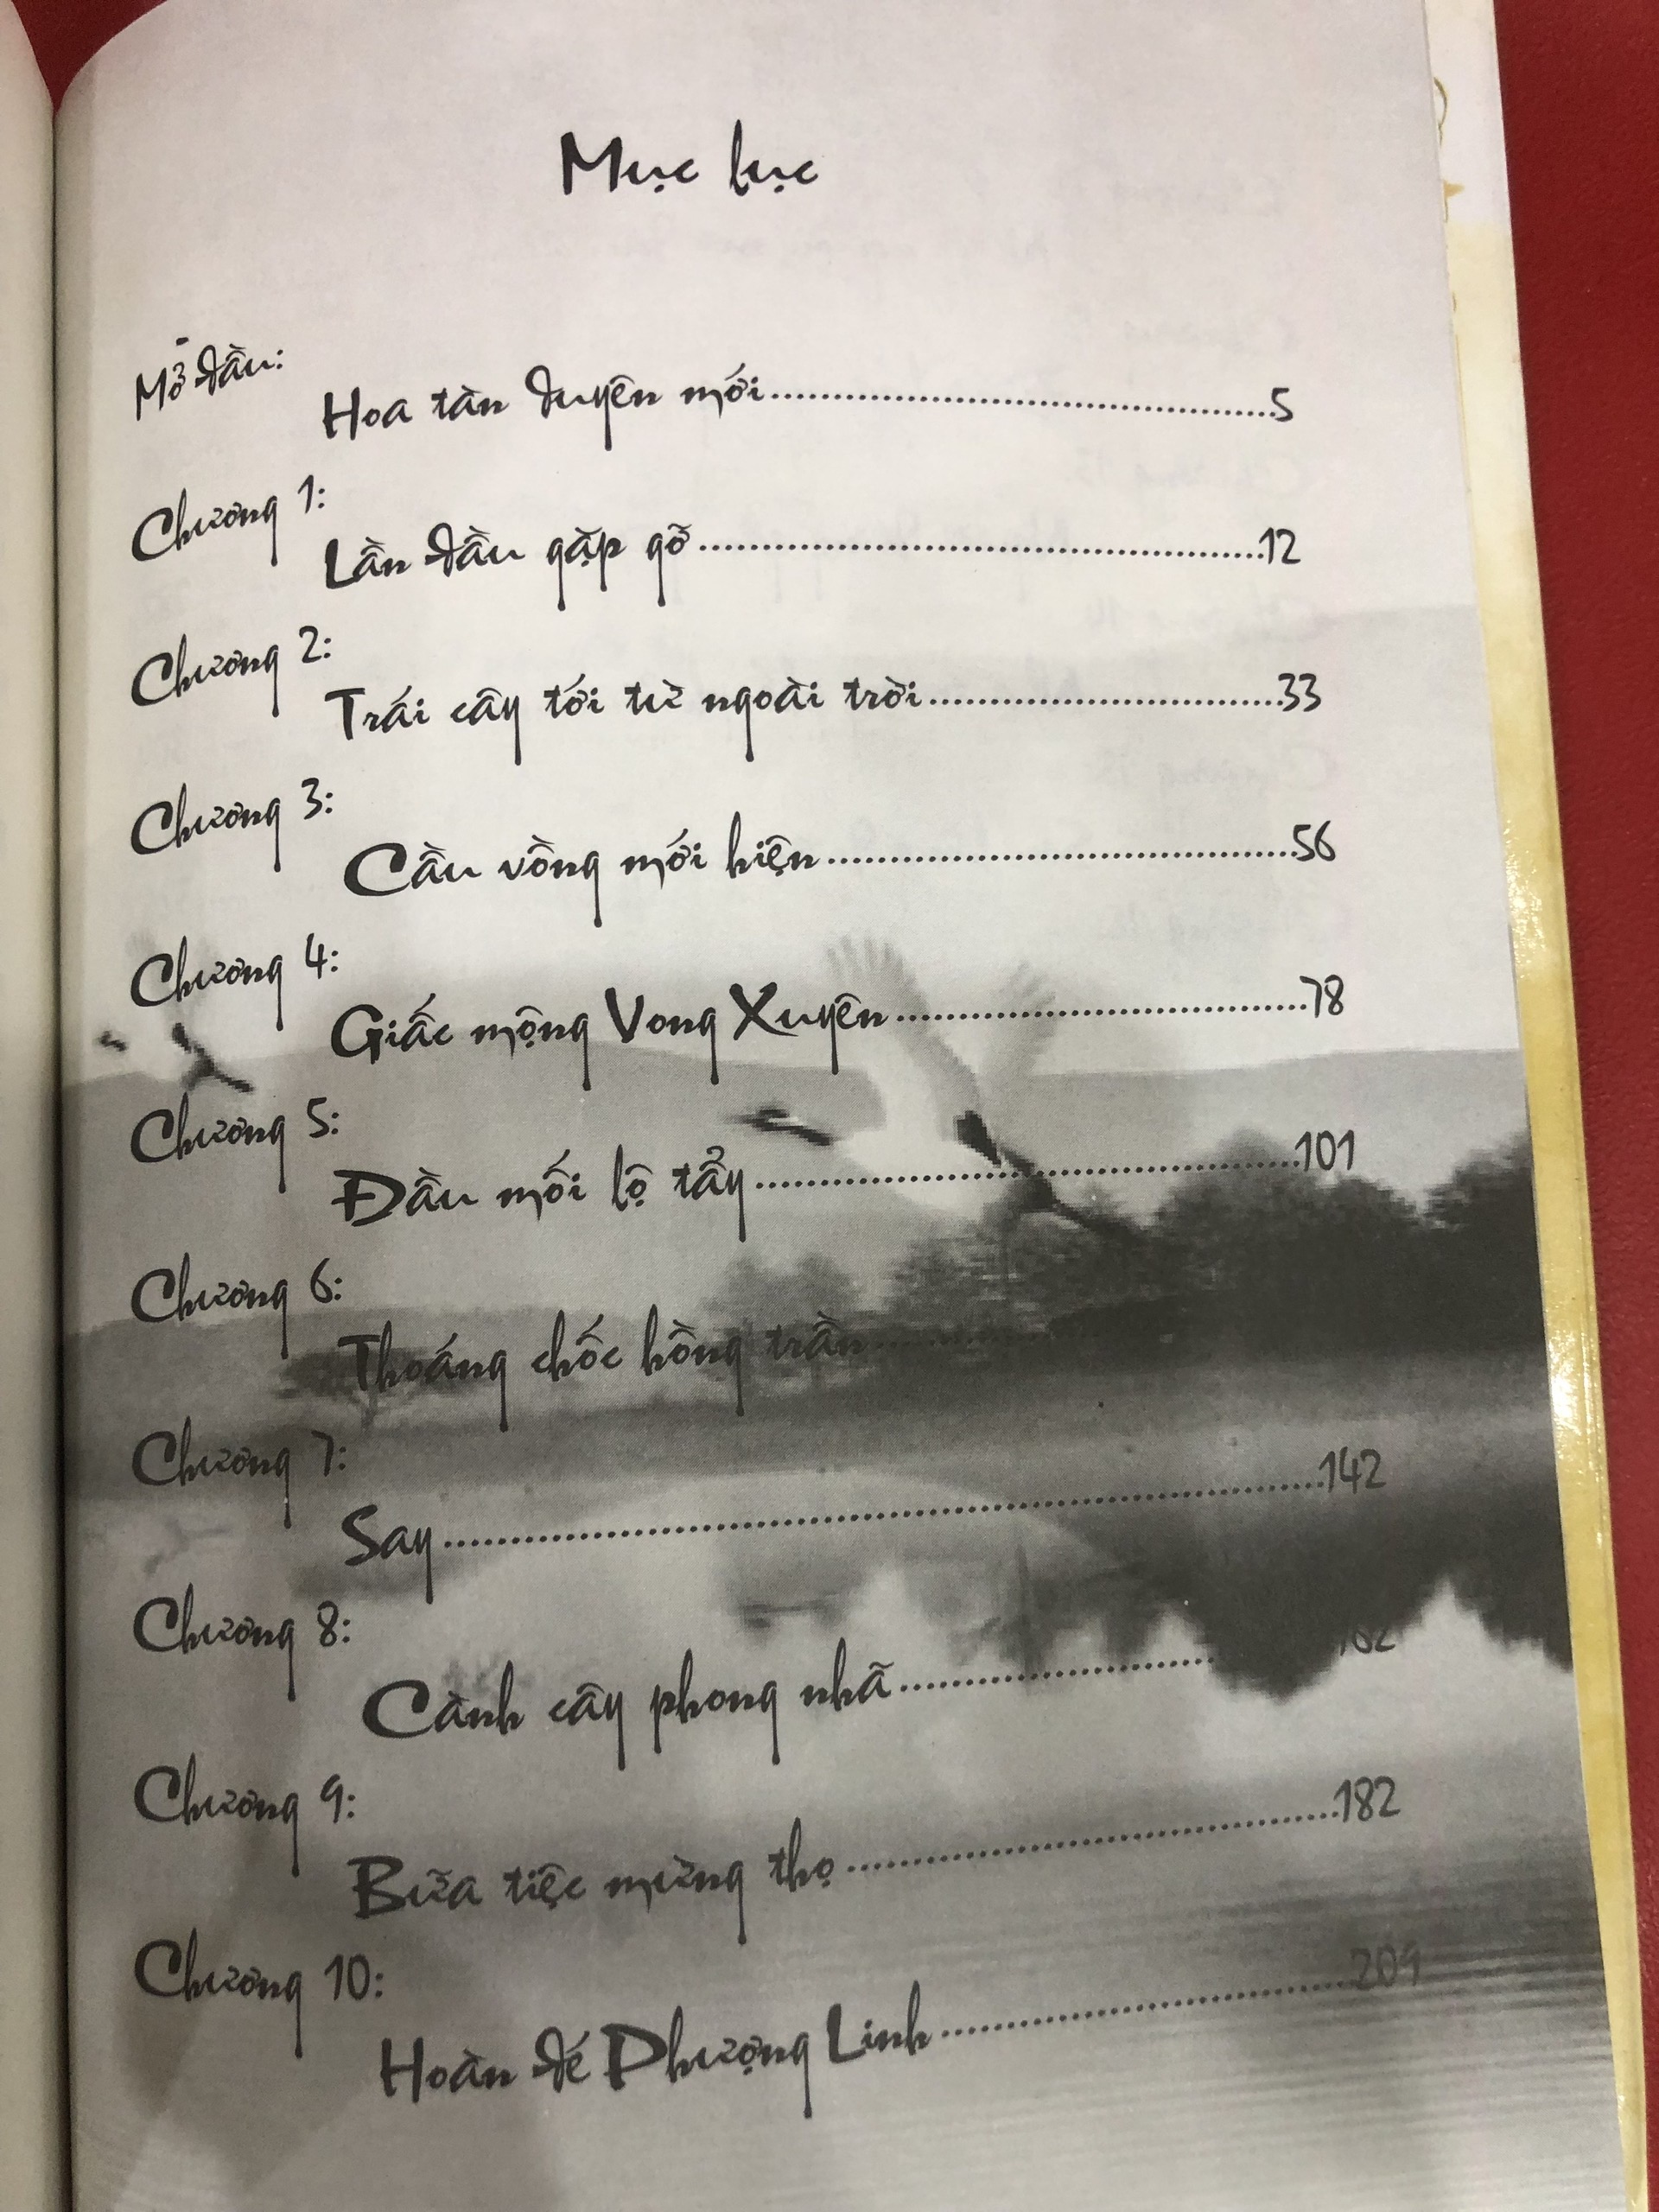 Mục lục
Mở đầu:
Hoa tàn duyên mới..........5
Chương 1:
Lần đầu gặp gỡ..........12
Chương 2:
Trái cây tới từ ngoài trời..........33
Chương 3:
Cầu vồng mới hiện..........56
Chương 4:
Giấc mộng Vong Xuyên..........78
Chương 5:
Đầu mối lộ tẩy..........101
Chương 6:
Thoáng chốc hồng trần..........
Chương 7:
Say..........142
Chương 8:
Cành cây phong nhã..........162
Chương 9:
Bữa tiệc mừng thọ..........182
Chương 10:
Hoàn đé Phượng Linh..........209